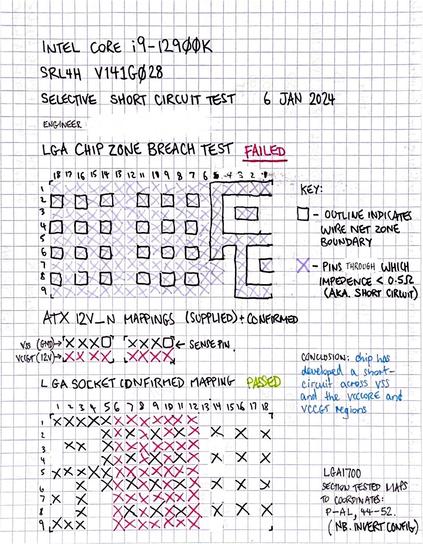 INTEL CORE i9-12900K
SRL4H V141G028
SELECTIVE SHORT CIRCUIT TEST 6 JAN 2024
ENGINEER
LGA CHIP ZONE BREACH TEST FAILED
18 17 16 15 14 13 12 11 10 9 8 7 6 5 4 3 2 1
1
2
3
4
5
6
7
8
9
KEY:
- OUTLINE INDICATES
WIRE NET ZONE
BOUNDARY
- PINS THROUGH WHICH
IMPEDENCE < 0.5Ω
(AKA. SHORT CIRUIT)
ATX 12V_N MAPPINGS (SUPPLIED) + CONFIRMED
VSS (GND)
← SENSE PIN.
VCCGT (12V)
CONCLUSION: chip has
developed a short-
circuit across VSS
and the VCCCORE and
VCCGT regions
LGA SOCKET CONFIRMED MAPPING PASSED
1 2 3 4 5 6 7 8 9 10 11 12 13 14 15 16 17 18
1
2
3
4
5
6
7
8
9
LGA1700
SECTION TESTED MAPS
TO COORDINATES:
P-AL, 44-52.
(NB. INVERT CONFIG)